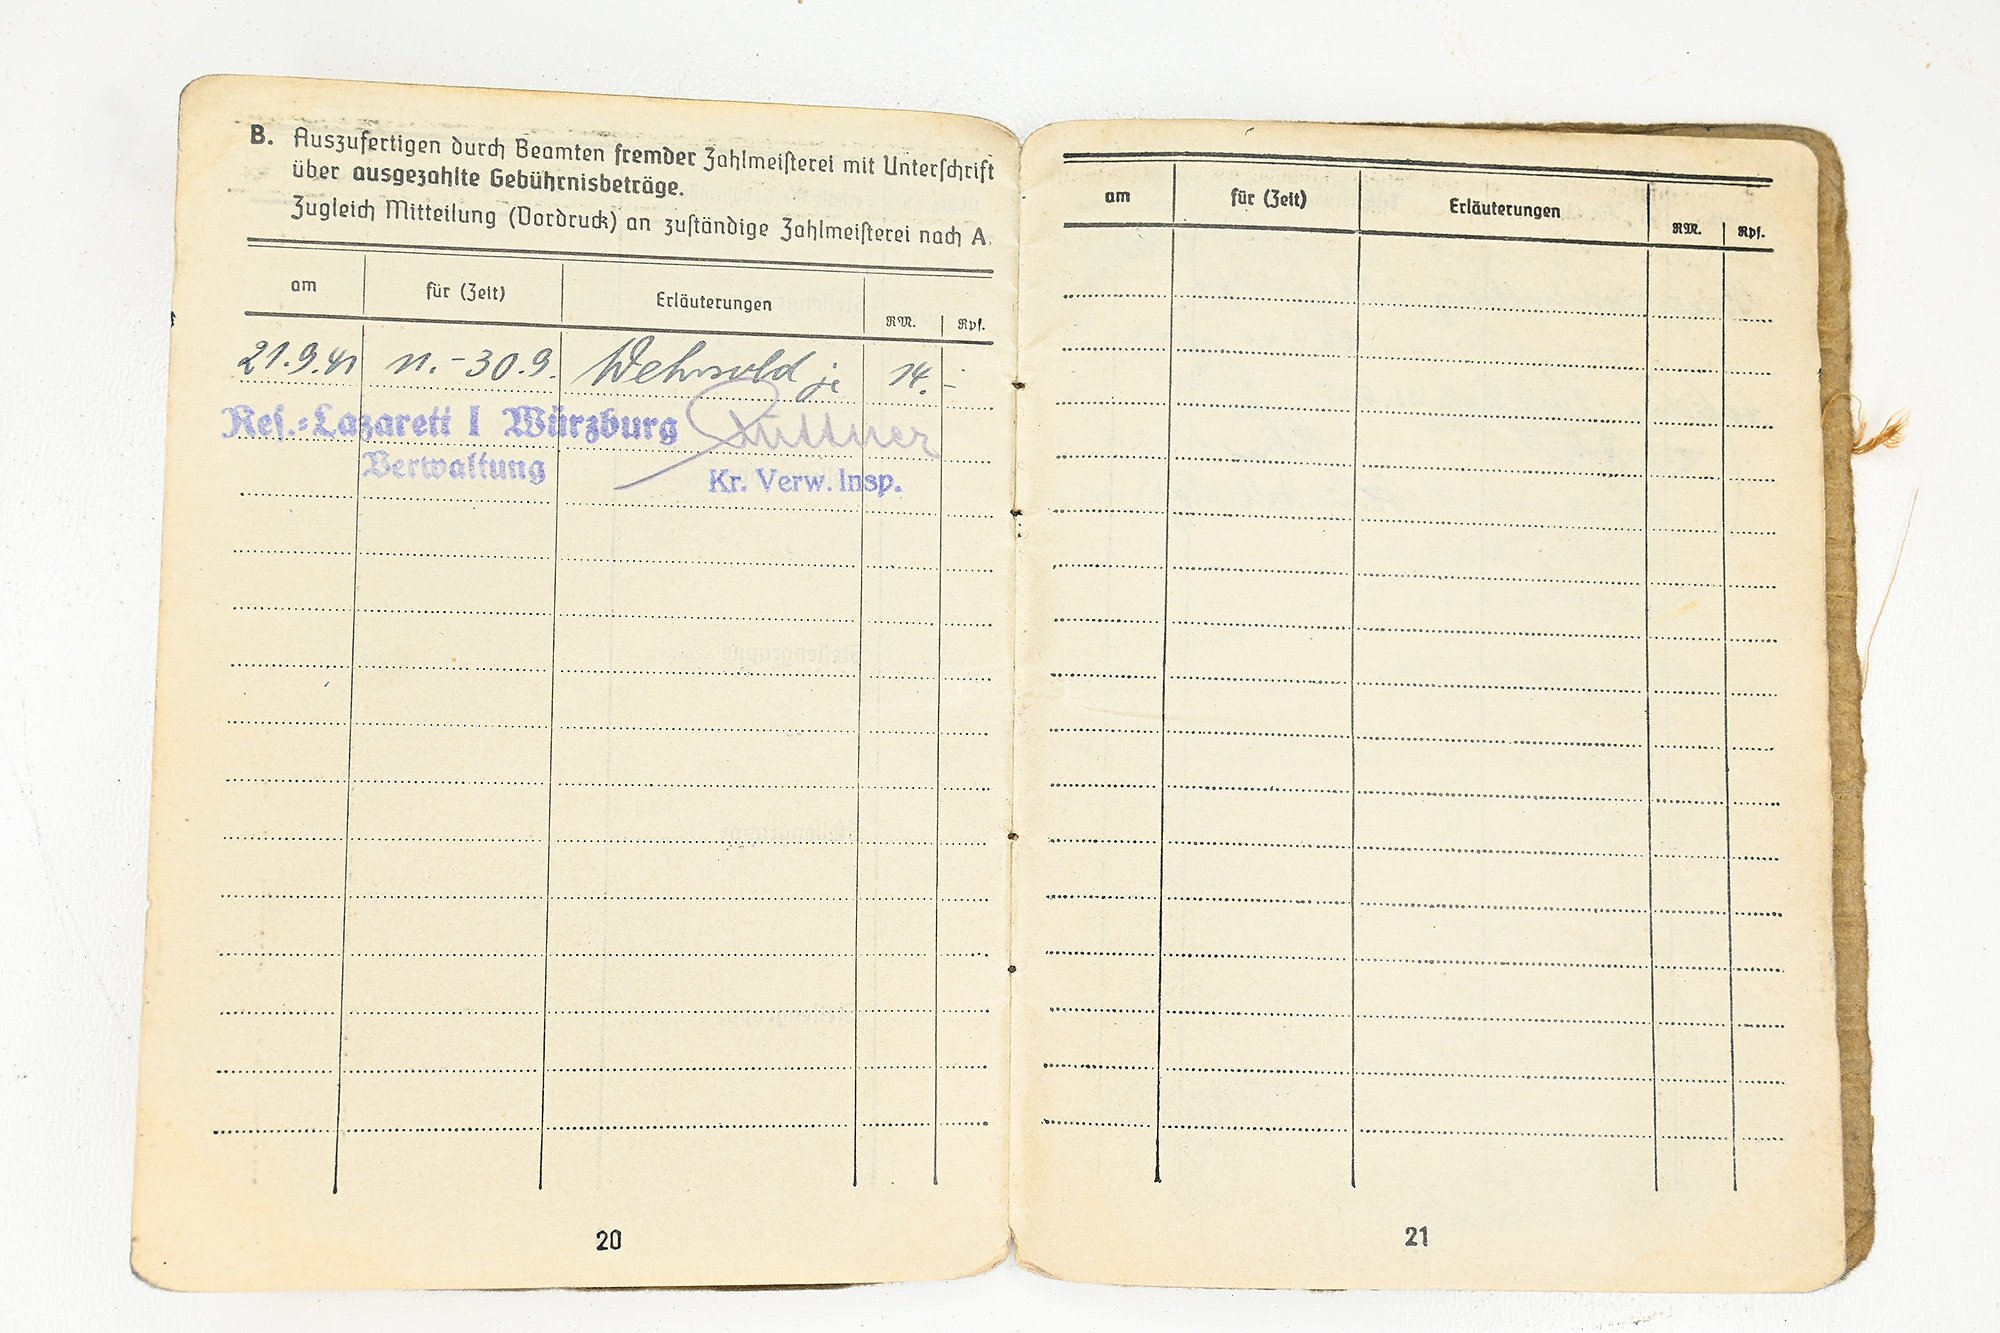 B. Auszufertigen durch Beamten fremder Zahlmeisterei mit Unterschrift
über ausgezahlte Gebührnisbeträge.
Zugleich Mitteilung (Vordruck) an zuständige Zahlmeisterei nach A.
am für (Zeit) Erläuterungen RM. Rpf.
21.9.41 11.-30.9. Wehrsold je 14. -
Res.-Lazarett I Würzburg
Verwaltung
Kr. Verw. Insp.
20
am für (Zeit) Erläuterungen RM. Rpf.
21